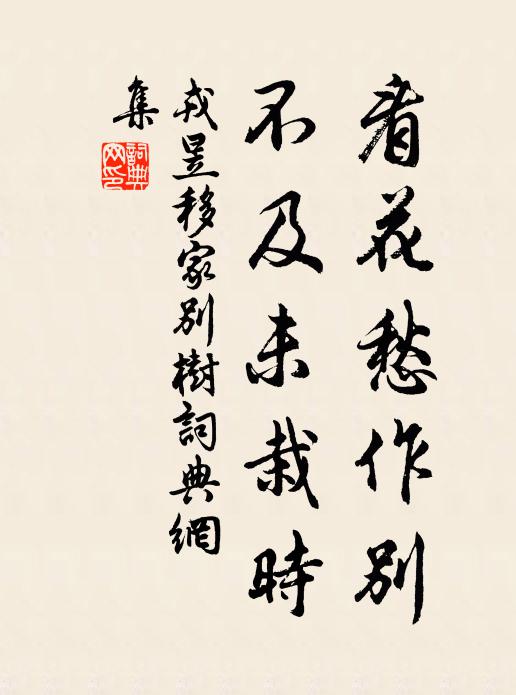 看花愁作别
不及未栽時
戎昱移家别樹詞典網
集
詞典
网印